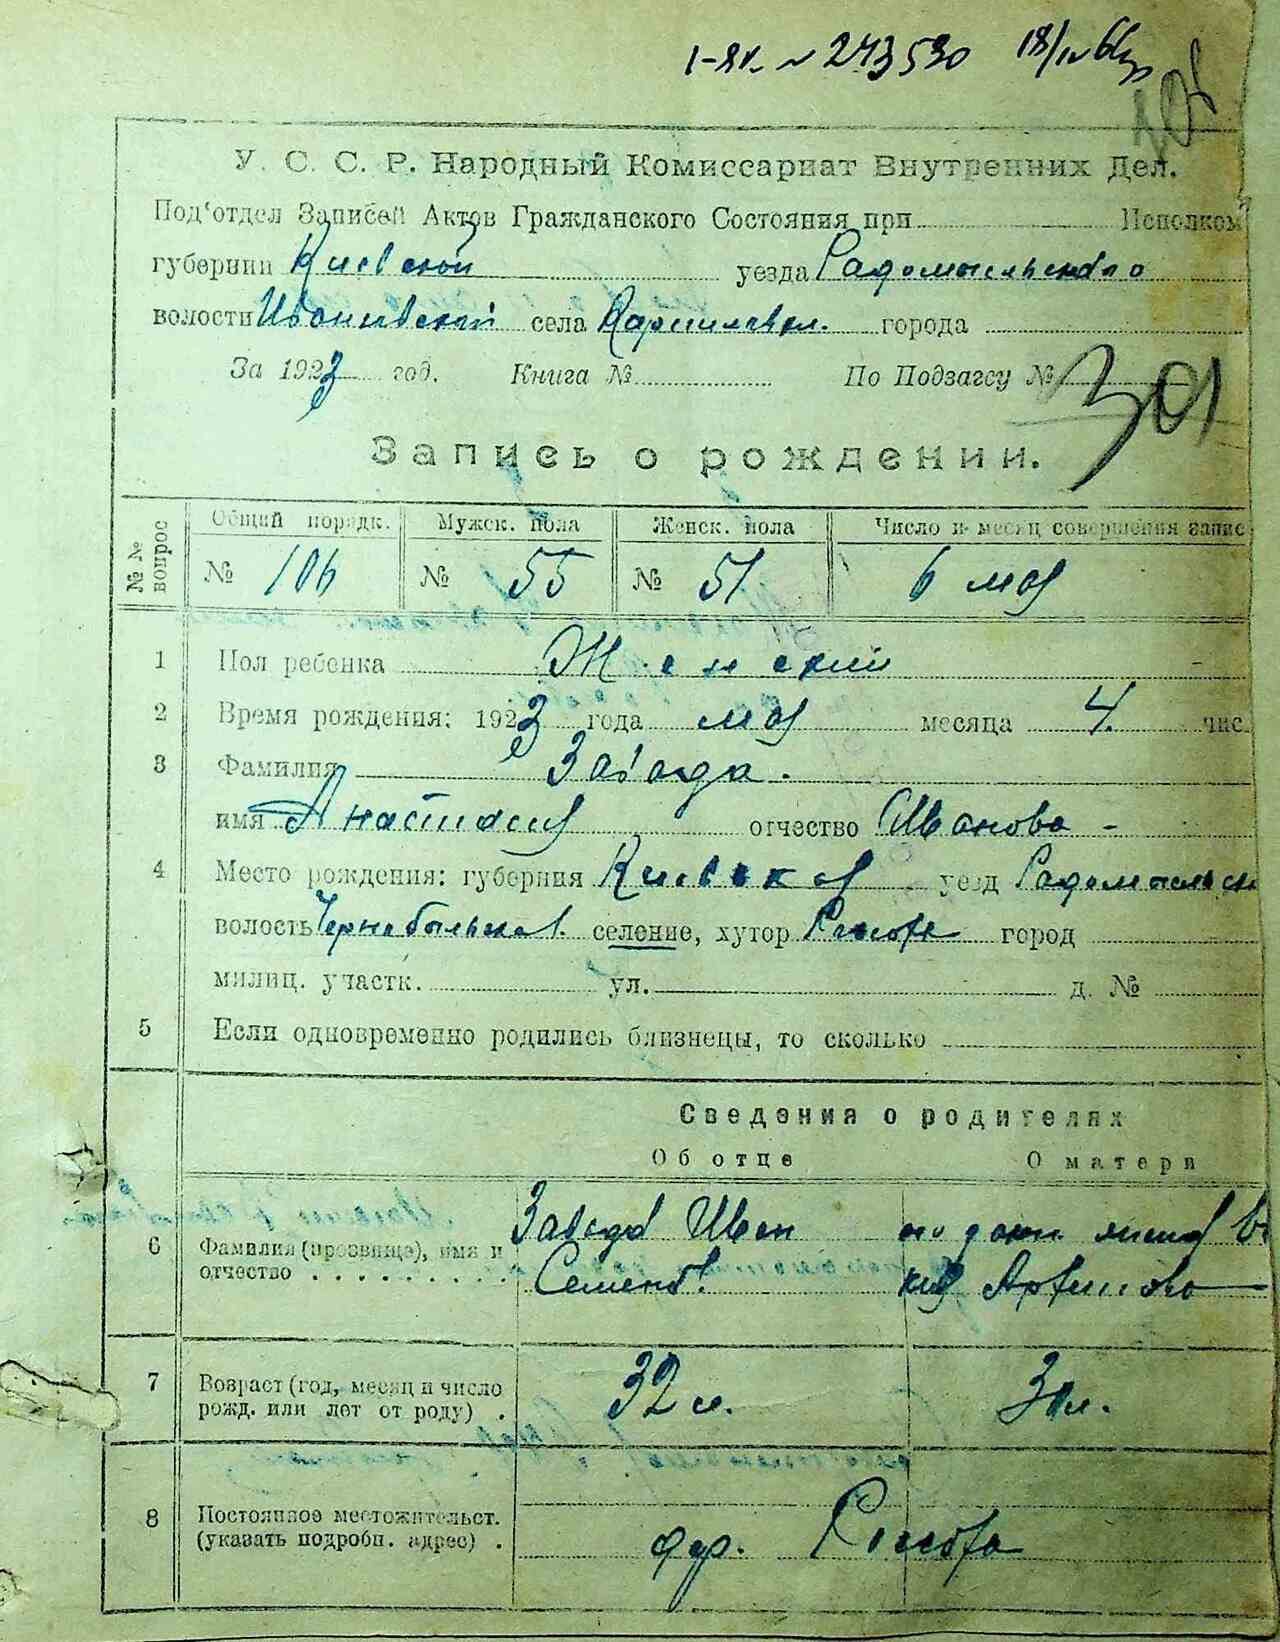 I-ЯЛ. № 243530 18/IV 66
301
У. С. С. Р. Народный Комиссариат Внутренних Дел.
Под'отдел Записей Актов Гражданского Состояния при Исполком
губернии Киевской уезда Радомысльского
волости Иванковской села города
За 1923 год. Книга № По Подзагсу №
Запись о рождении.
№№ вопрос Общий порядк. Мужск. пола Женск. пола Число и месяц совершения запис
№ 106 № 55 № 51 6 мая
1 Пол ребенка Женский
2 Время рождения: 1923 года мая месяца 4. чис
3 Фамилия Завода.
имя Анастасия отчество Иванова -
4 Место рождения: губерния Киевская уезд Радомысльск
волость Чернобыльская селение, хутор город
милиц. участк. ул. д. №
5 Если одновременно родились близнецы, то сколько
Сведения о родителях
Об отце О матери
6 Фамилия (прозвище), имя и Завода Иван
отчество . . . . . . . . . . Семенов.
7 Возраст (год, месяц и число 32 л. 30 л.
рожд. или лет от роду) .
8 Постоянное местожительст.
(указать подробн. адрес) . дер.